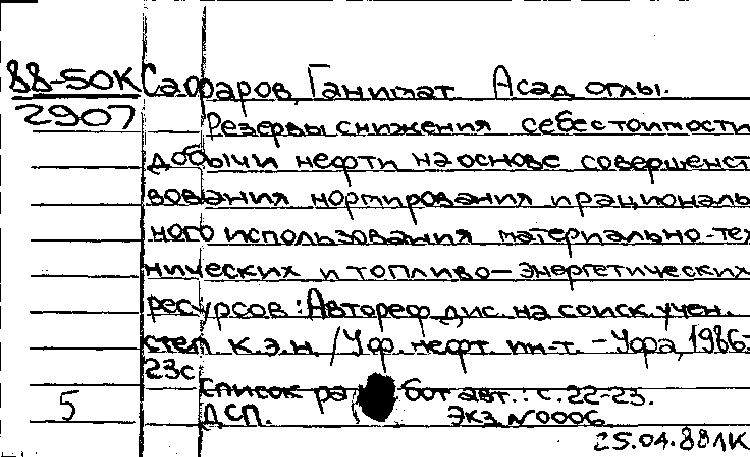 88-50К Сафаров, Ганимат Асад оглы.
2907 Резервы снижения себестоимости
добычи нефти на основе совершенст
вования нормирования и рациональ
ного использования материально-тех
нических и топливо-энергетических
ресурсов : Автореф. дис. на соиск. учен.
степ. к.э.н. / Уф. нефт. ин-т. - Уфа, 1986.-
23с
5 Список работ авт.: с. 22-23.
ДСП. Экз. №0006.
25.04.88 ЛК